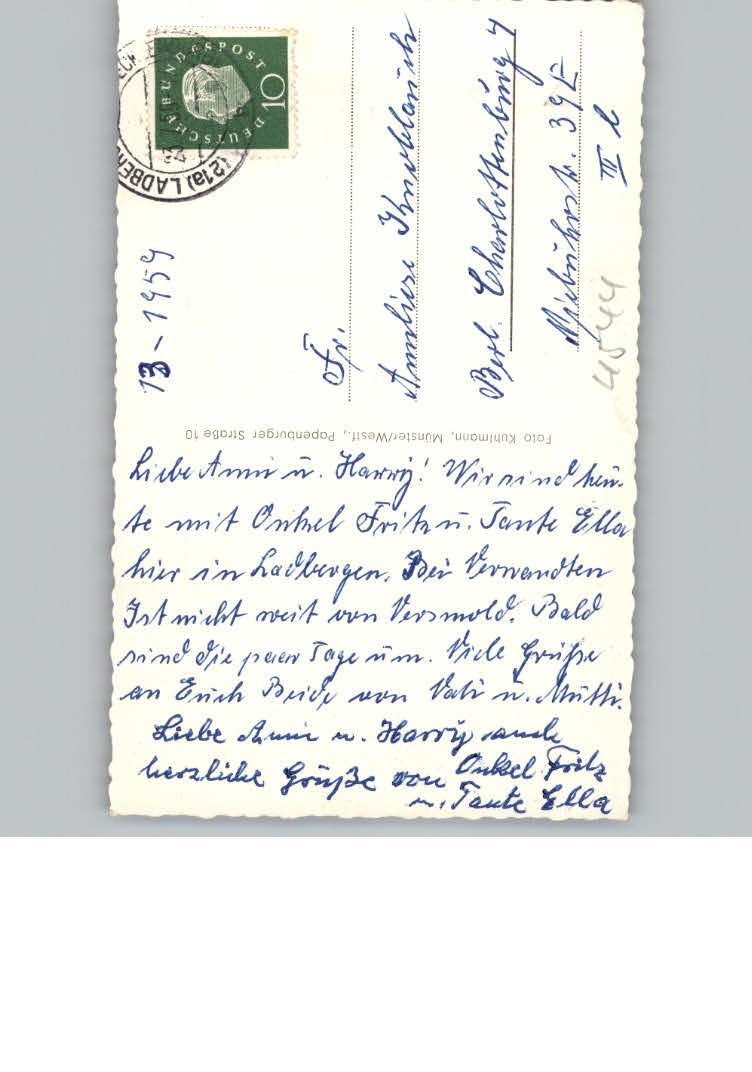 DEUTSCHE BUNDESPOST
10
(21a) LADBERGEN
13-1959
Fr.
Anneliese Knoblauch
Berl. Charlottenburg 4
Niebuhrstr. 39
III l
4544
Foto Kuhlmann, Münster/Westf., Papenburger Straße 10
Liebe Anni u. Harry! Wir sind heu-
te mit Onkel Fritz u. Tante Ella
hier in Ladbergen. Bei Verwandten
Ist nicht weit von Versmold. Bald
sind die paar Tage um. Viele Grüße
an Euch Beide von Vati u. Mutti.
Liebe Anni u. Harry auch
herzliche Grüße von Onkel Fritz
u. Tante Ella